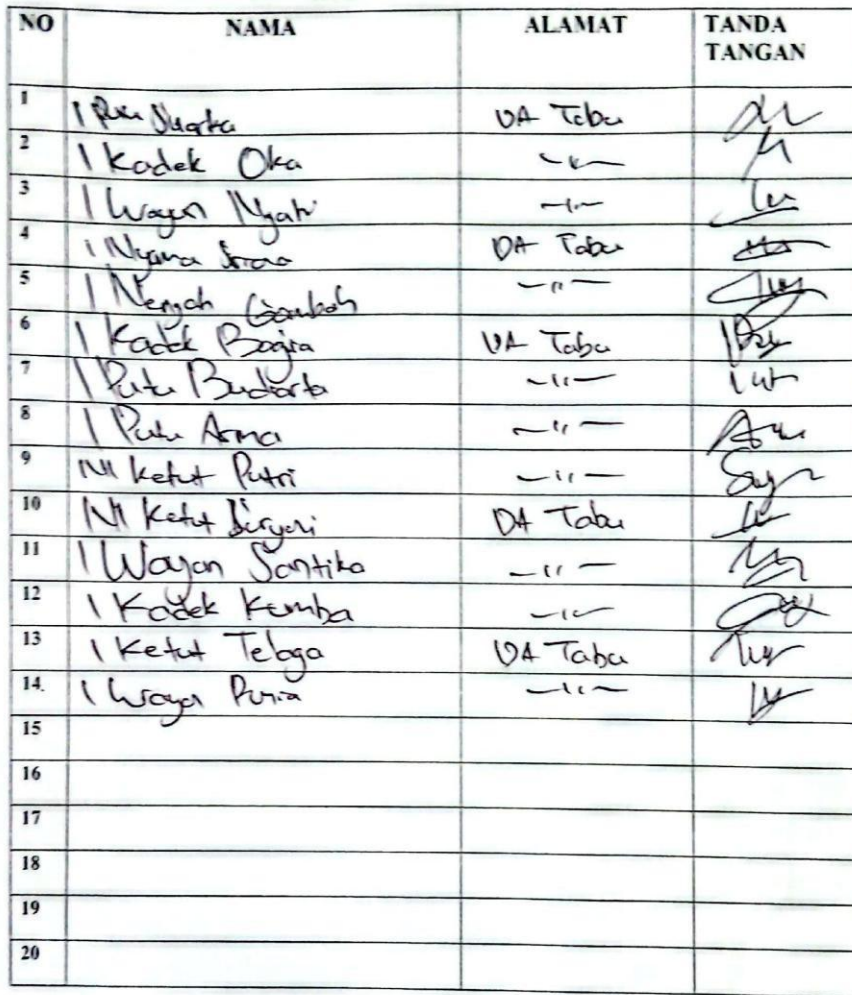 NO NAMA ALAMAT TANDA TANGAN
1 I Putu Suarta UA Tabu
2 I Kadek Oka -"-
3 I Wayan Nyatri -"-
4 I Nyoman UA Tabu
5 I Nengah Gambah -"-
6 I Kadek Bagia UA Tabu
7 I Putu Budiarta -"-
8 I Putu Arma -"-
9 NI Ketut Putri -"-
10 NI Ketut Suryani UA Tabu
11 I Wayan Santika -"-
12 I Kadek Kumba -"-
13 I Ketut Telaga UA Tabu
14. I Wayan Punia -"-
15
16
17
18
19
20